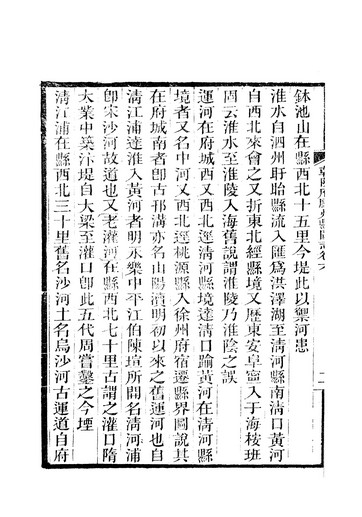 鉢池山在縣西北十五里今堤此以禦河患
淮水自泗州盱眙縣流入匯爲洪澤湖至清河縣南清口黃河
自西北來會之又折東北經縣境又歷東安阜寧入于海桉班
固云淮水至淮陵入海舊說謂淮陵乃淮陰之誤
運河在府城西又西逕清河縣境達清口踰黃河在清河縣
境者又名中河又西北逕桃源縣入徐州府宿遷縣界圖說其
在府城南者卽古邗溝亦名山陽瀆明初以來之舊運河也自
清江浦達淮入黃河者明永樂中平江伯陳瑄所開名清河浦
卽宋沙河故道也又老灌河在縣西北七十里古謂之灌口隋
大業中築汴堤自大梁至灌口卽此五代周嘗鑿之今堙
清江浦在縣西北三十里舊名沙河土名烏沙河古運道自府